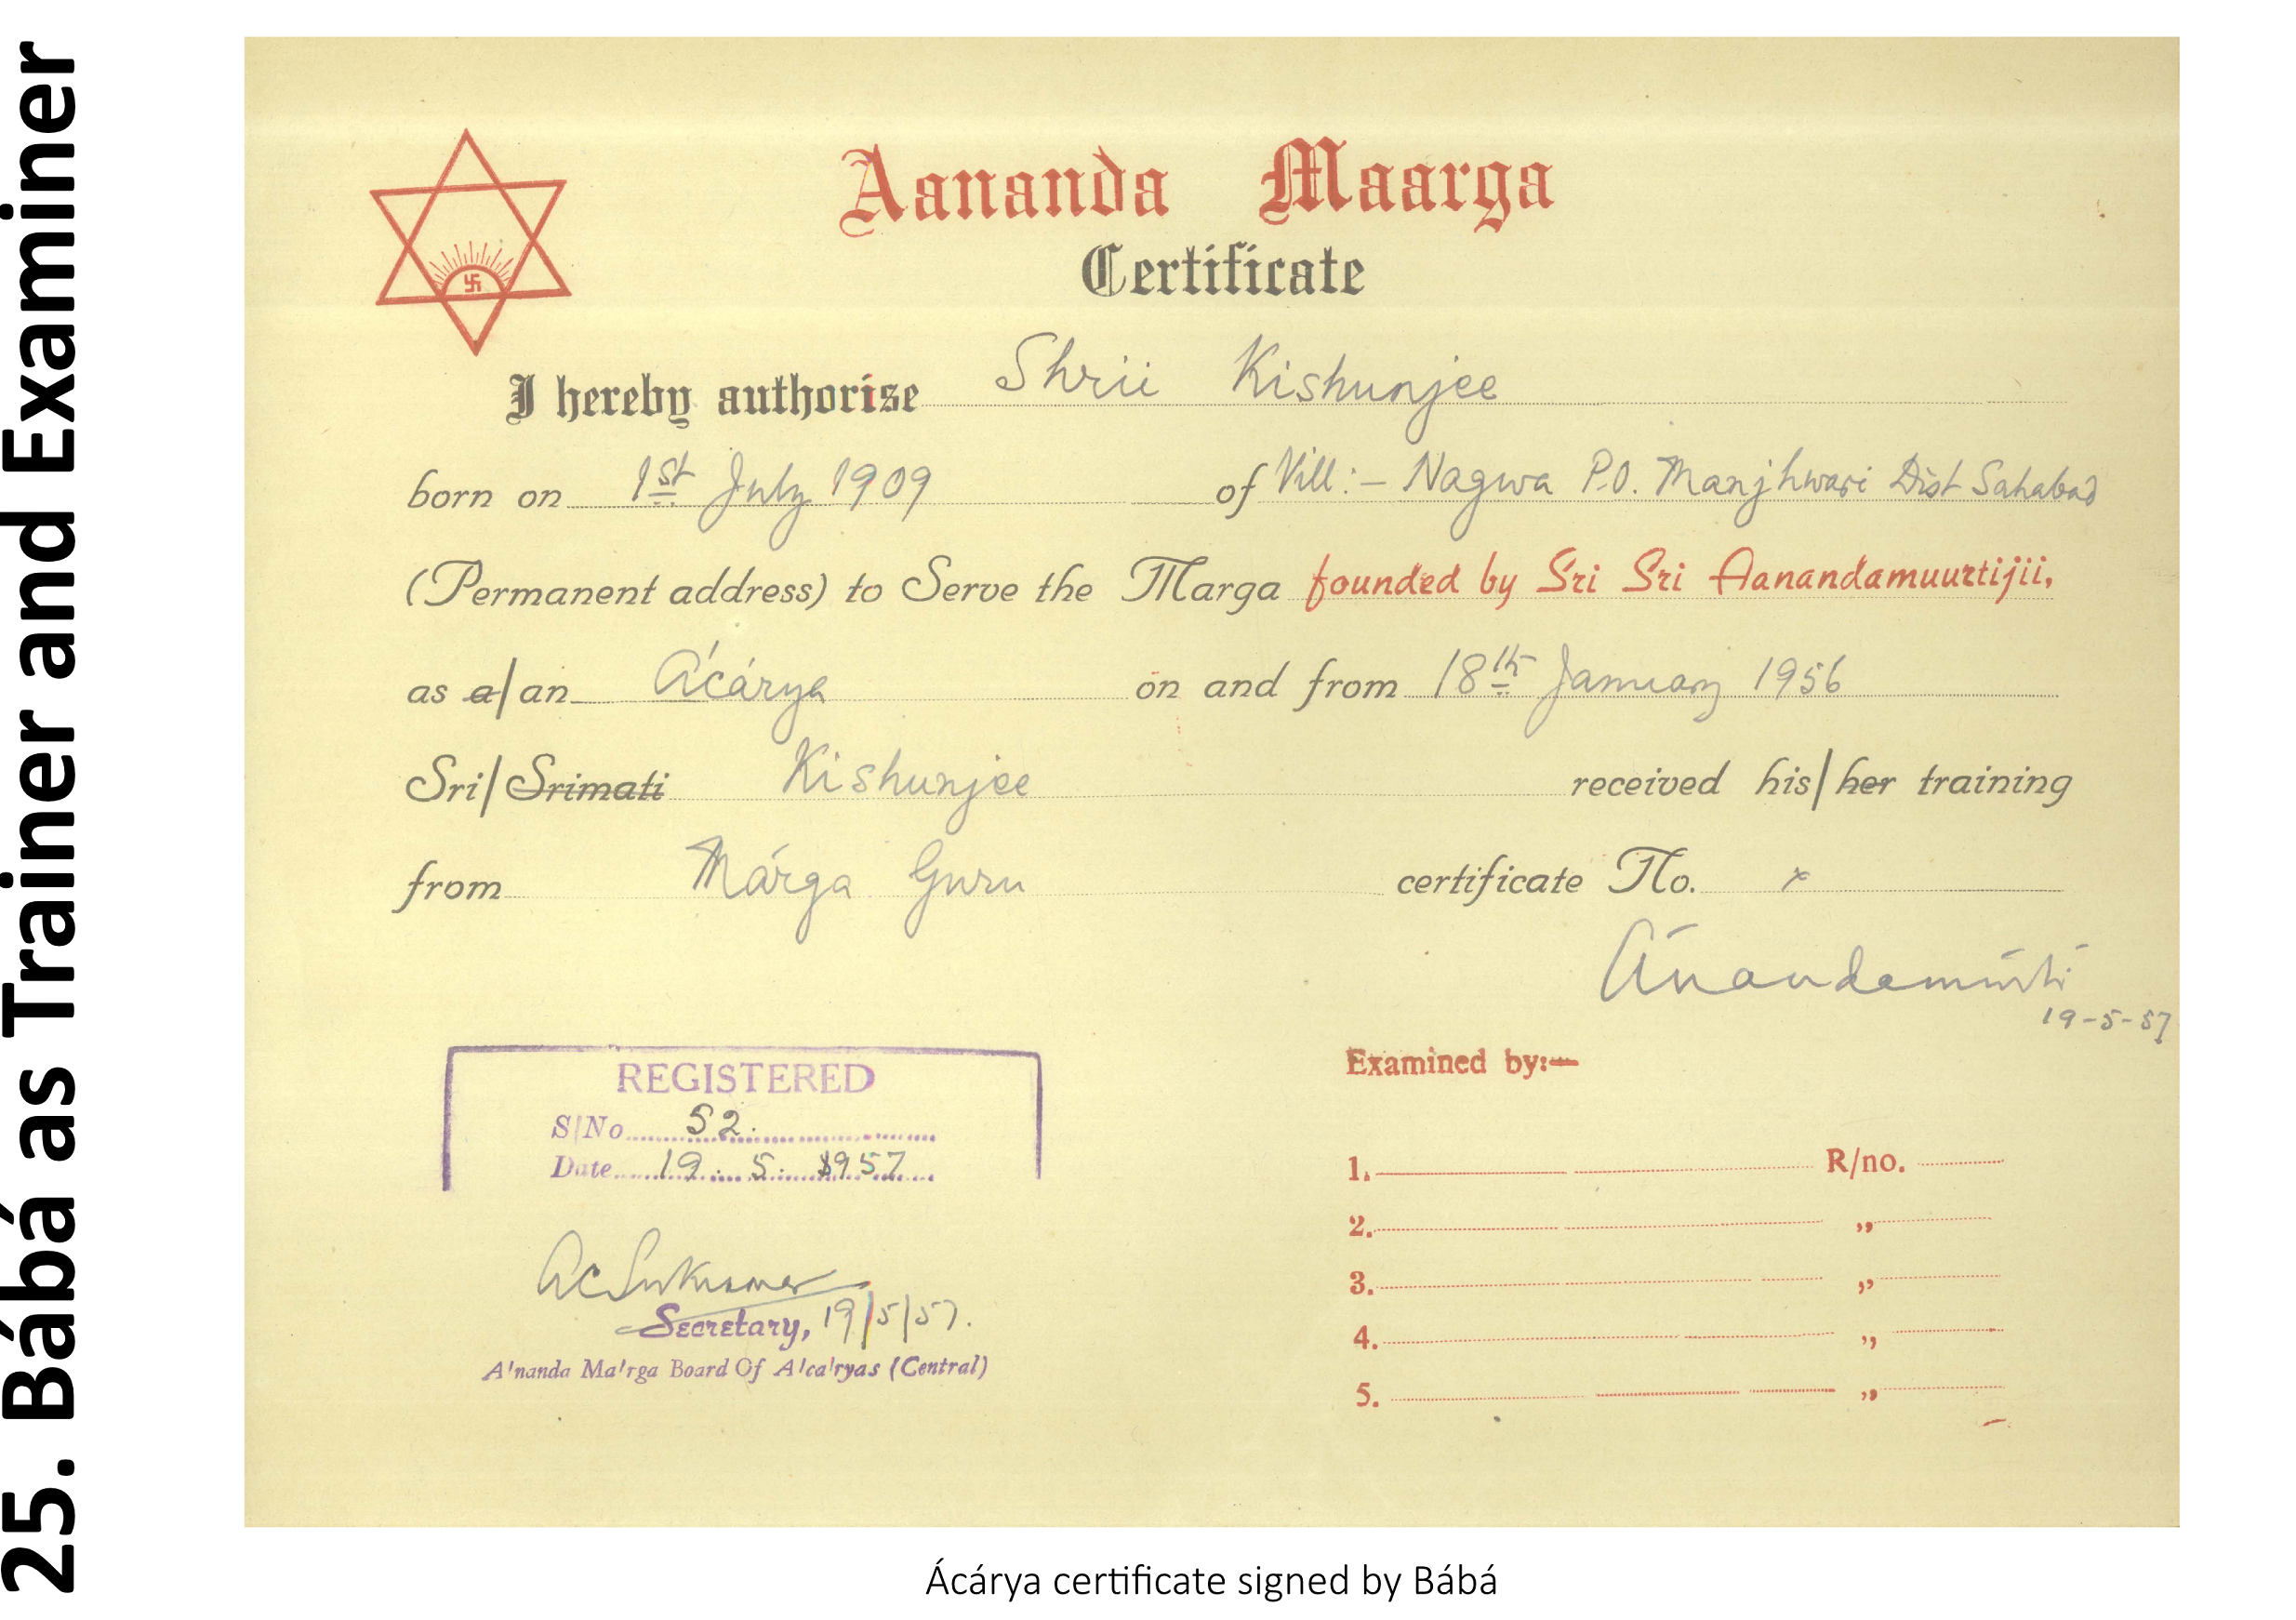 25. Bábá as Trainer and Examiner
Aananda Maarga
Certificate
I hereby authorise Shrii Kishunjee
born on 1st July 1909 of Vill:- Nagwa P.O. Manjhwari Dist Sahabad
(Permanent address) to Serve the Marga founded by Sri Sri Aanandamuurtijii,
as a/an Ácárya on and from 18th January 1956
Sri/Srimati Kishunjee received his/her training
from Márga Guru certificate No. x
Ánandamúrti
19-5-57
REGISTERED
S/No 52.
Date 19. 5. 1957
Examined by:-
1. R/no.
2. ,,
3. ,,
4. ,,
5. ,,
AC Sukumar
Secretary, 19/5/57.
A'nanda Ma'rga Board Of A'ca'ryas (Central)
Ácárya certificate signed by Bábá